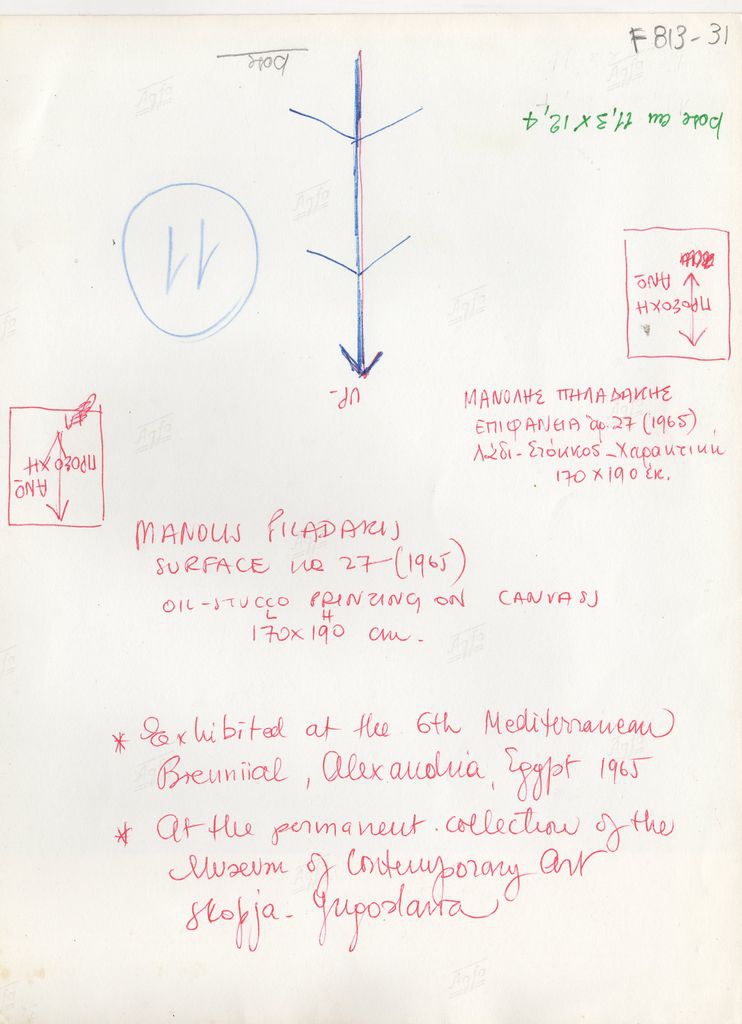 F 813-31
base
base au 11,3 x 12,4
11
ΠΡΟΣΟΧΗ
ΑΝΩ
UP-
ΠΡΟΣΟΧΗ
ΑΝΩ
ΜΑΝΟΛΗΣ ΠΗΛΑΔΑΚΗΣ
ΕΠΙΦΑΝΕΙΑ αρ. 27 (1965)
Λάδι - Στόκκος - Χαρακτική
170 X 190 εκ.
MANOLIS PILADAKIS
SURFACE no 27 - (1965)
OIL-STUCCO PRINTING ON CANVASS
L H
170x190 cm.
* Exhibited at the 6th Mediterranean
Brenniial, Alexandria, Egypt 1965
* At the permanent collection of the
Museum of Contemporary Art
Skopja - Yugoslavia
Agfa